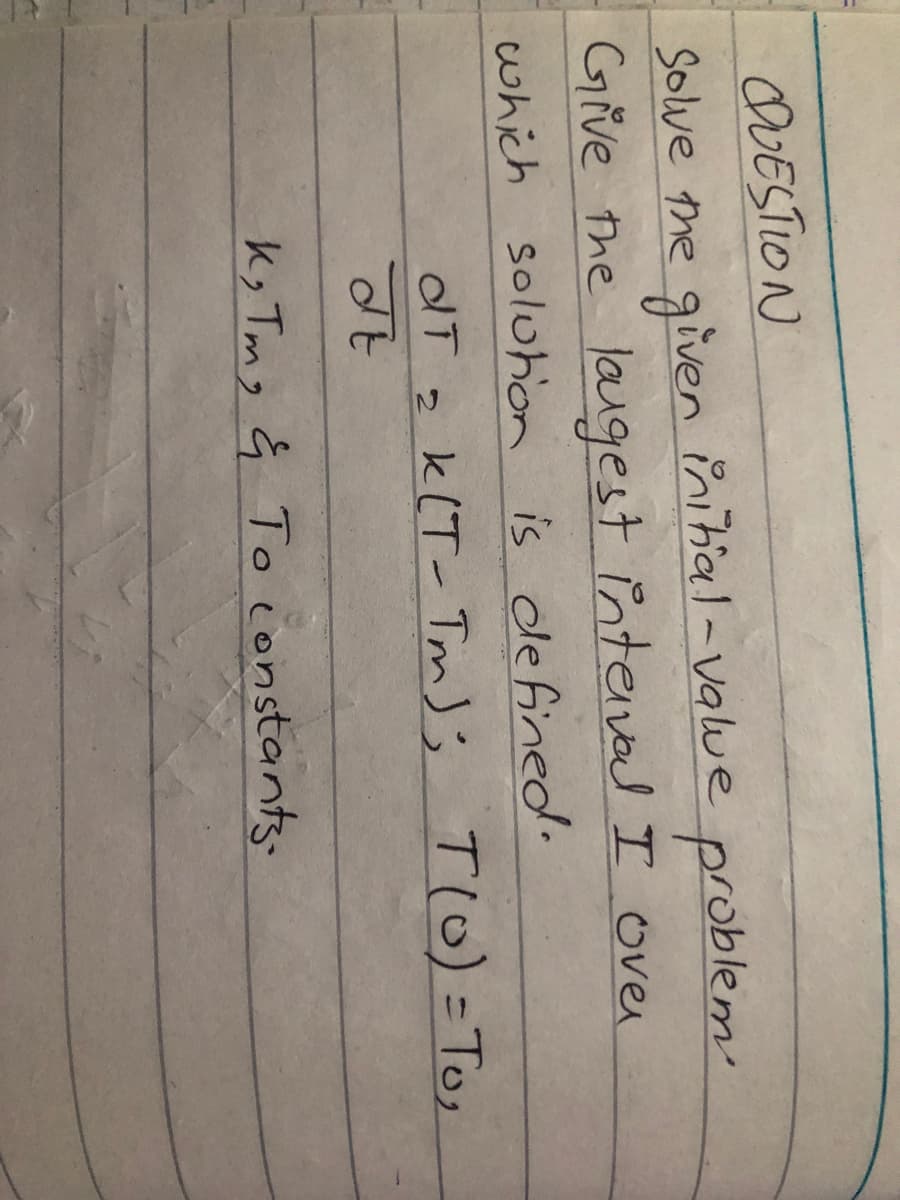 QUESTION
Solve the given initial-value problem.
Give the largest interval I over
which solution is defined.
dT = k(T - Tm); T(0) = To,
dt
k, Tm, & To constants.